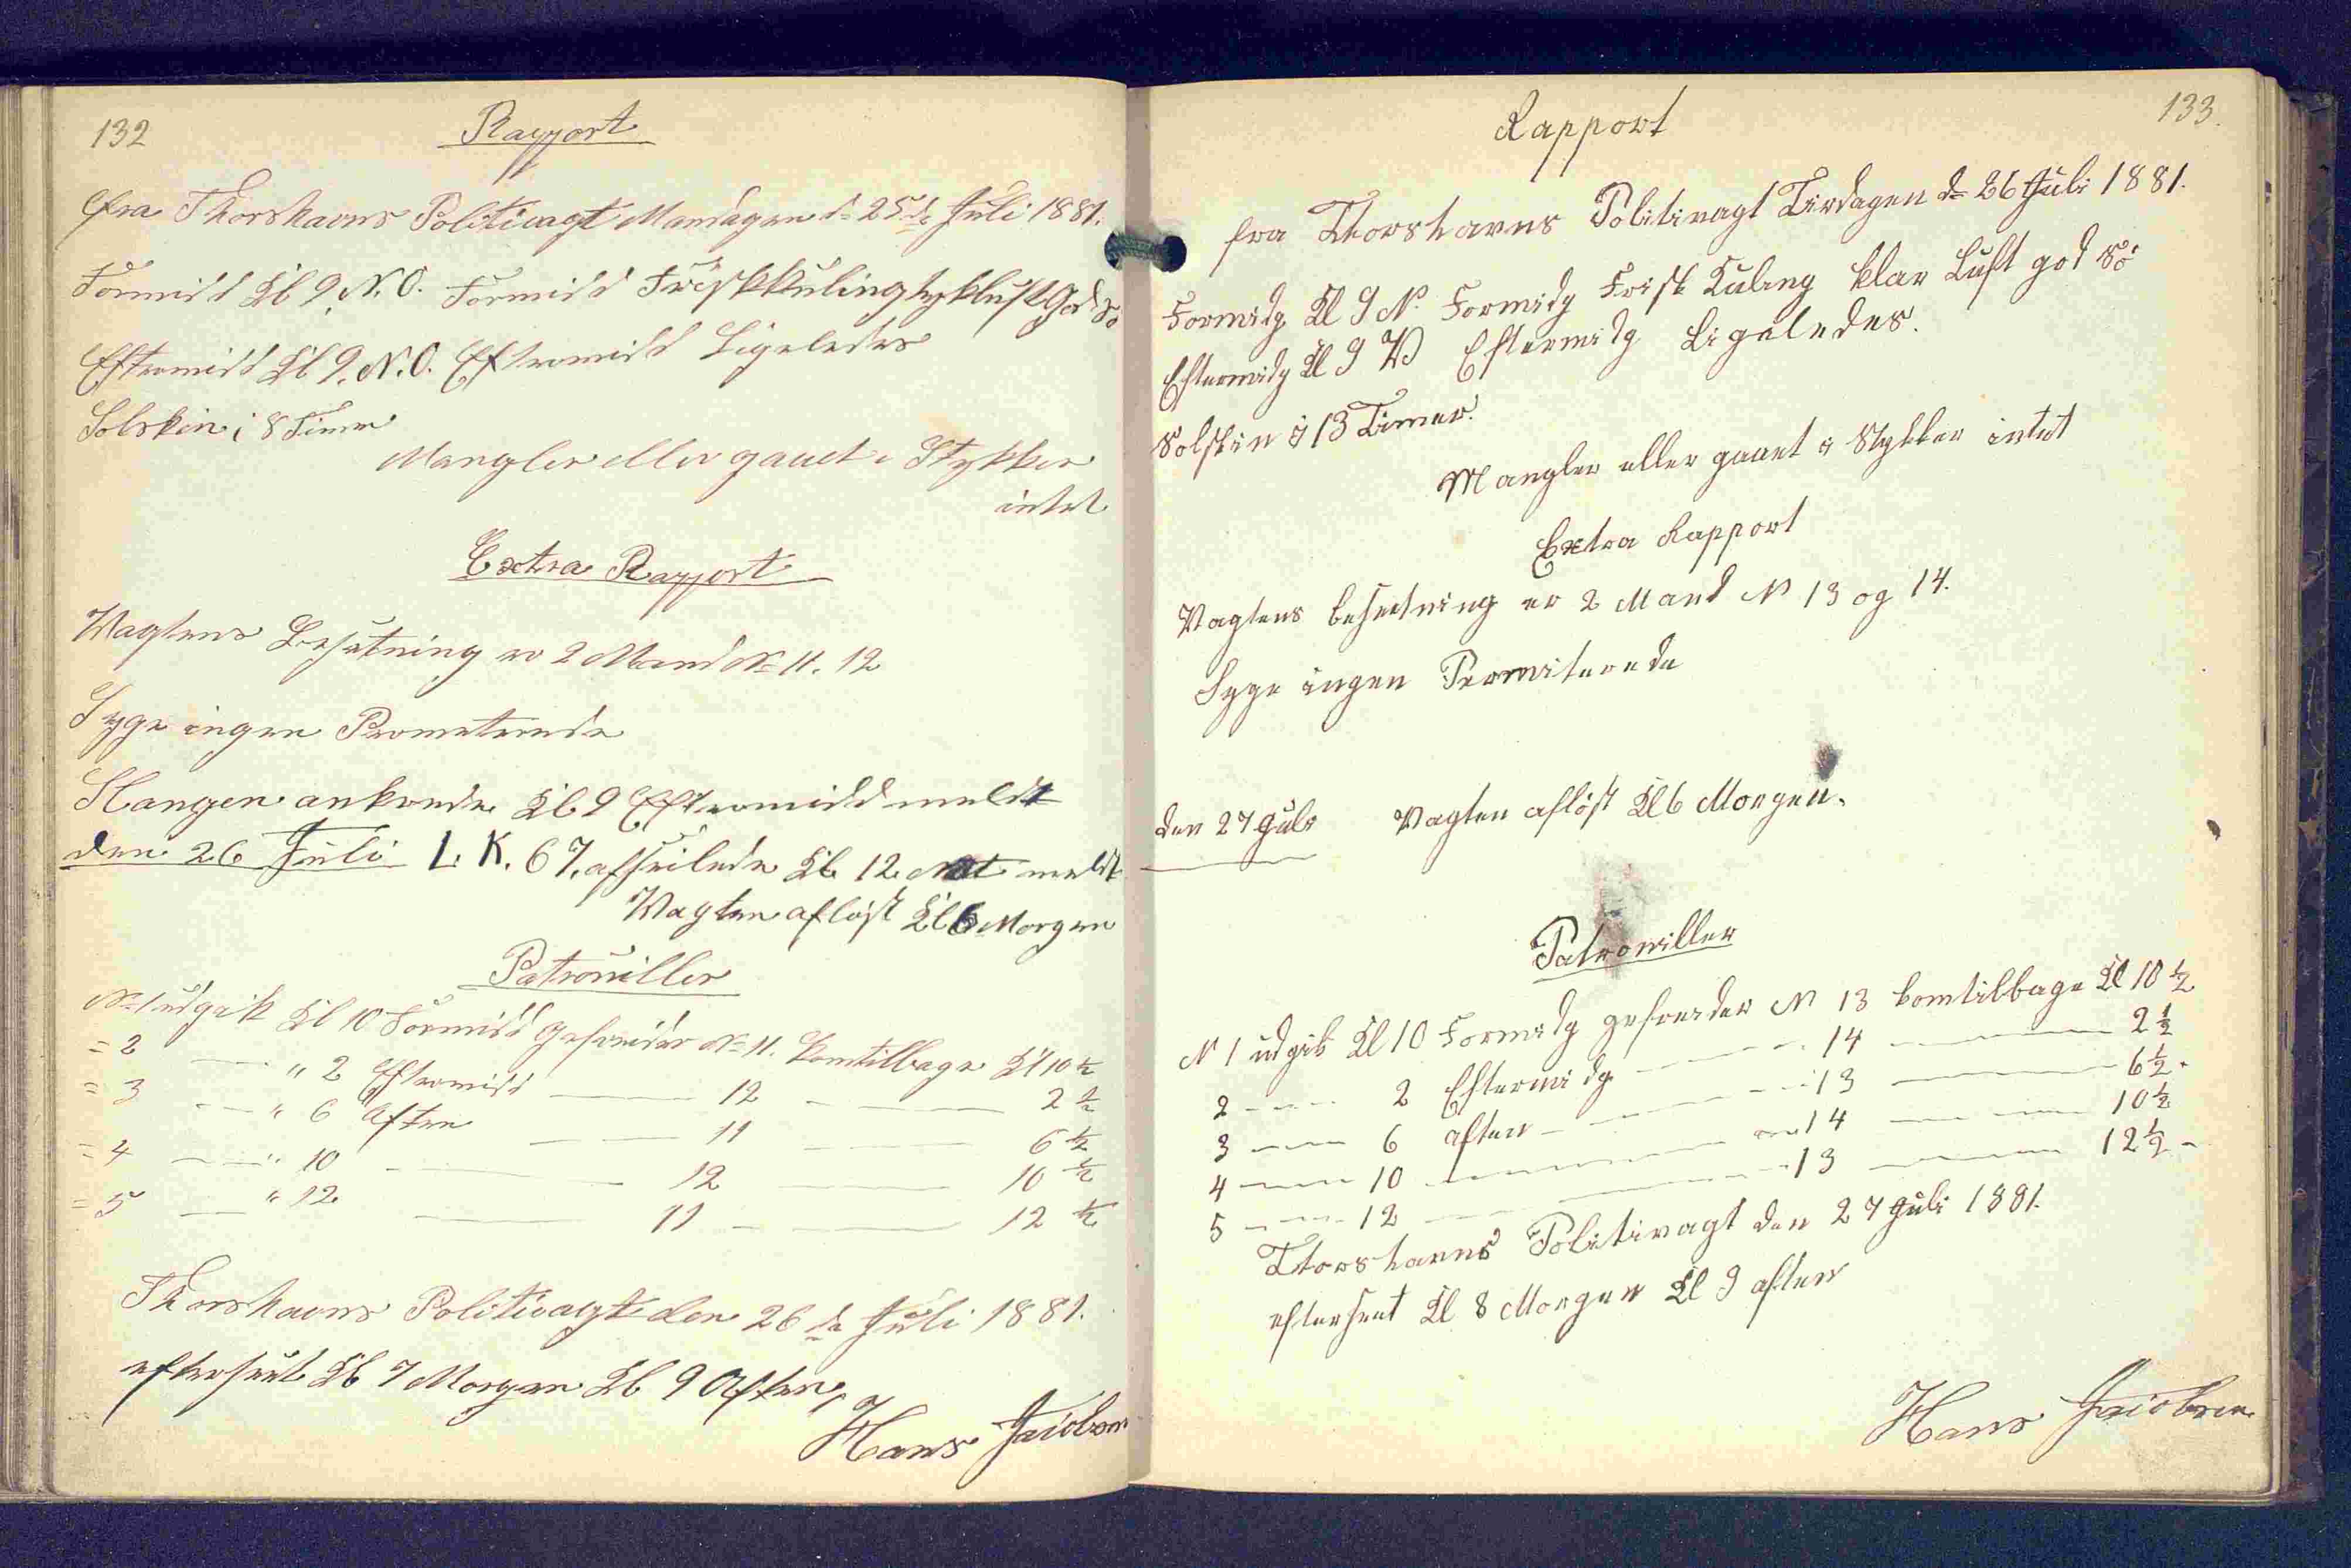 132
Rapport
fra Thorshavns Politivagt Mandagen d. 25de Juli 1881.
Formidd Kl 9. N.O. Formidd Friskkuling tykluft God Sö
Eftermidd Kl 9. N.O. Eftermidd Ligeledes
Solskin i 8 Timer
Mangler eller gaaet i Stykker
intet
Extra Rapport
Vagtens Besætning er 2 Mand No 11. 12
Syge ingen Permeterede
ankrede Kl 9 Eftermidd meldt
den 26 Juli L. K. 67. afseilede Kl. 12 Nat meldt
Vagten aflöst Kl 6 Morgen
Patrouiller
No 1 udgik Kl 10 Formidd Gefreider No 11. komtilbage Kl 10 ½
= 2 — " 2 Eftermidd — 12 — 2 ½
= 3 — " 6 Aften — 11 — 6 ½
= 4 — " 10 — 12 — 10 ½
= 5 — " 12 — 11 — 12 ½
Thorshavns Politivagt den 26de Juli 1881.
efterseet Kl 7 Morgen Kl 9 Aften,
Hans Jacobsen
133.
Rapport
fra Thorshavns Politivagt Tirdagen d. 26 Juli 1881.
Formidg Kl 9 N. Formidg Frisk Kuling klar Luft god Sö
Eftermidg Kl 9 V Eftermidg Ligeledes.
Solskin i 13 Timer.
Mangler eller gaaet i Stykker intet
Extra Rapport
Vagtens besetning er 2 Mand N 13 og 14.
Syge ingen Permiterede
den 27 Juli Vagten aflöst Kl 6 Morgen.
Patrouiller
N 1 udgik Kl 10 Formidg gefreider N 13 komtilbage Kl 10 ½
2 — 2 Eftermidg — 14 — 2 ½
3 — 6 aften — 13 — 6 ½.
4 — 10 — 14 — 10 ½
5 — 12 — 13 — 12 ½ -
Thorshavns Politivagt den 27 Juli 1881.
efterseet Kl 8 Morgen Kl 9 aften
Hans Jacobsen